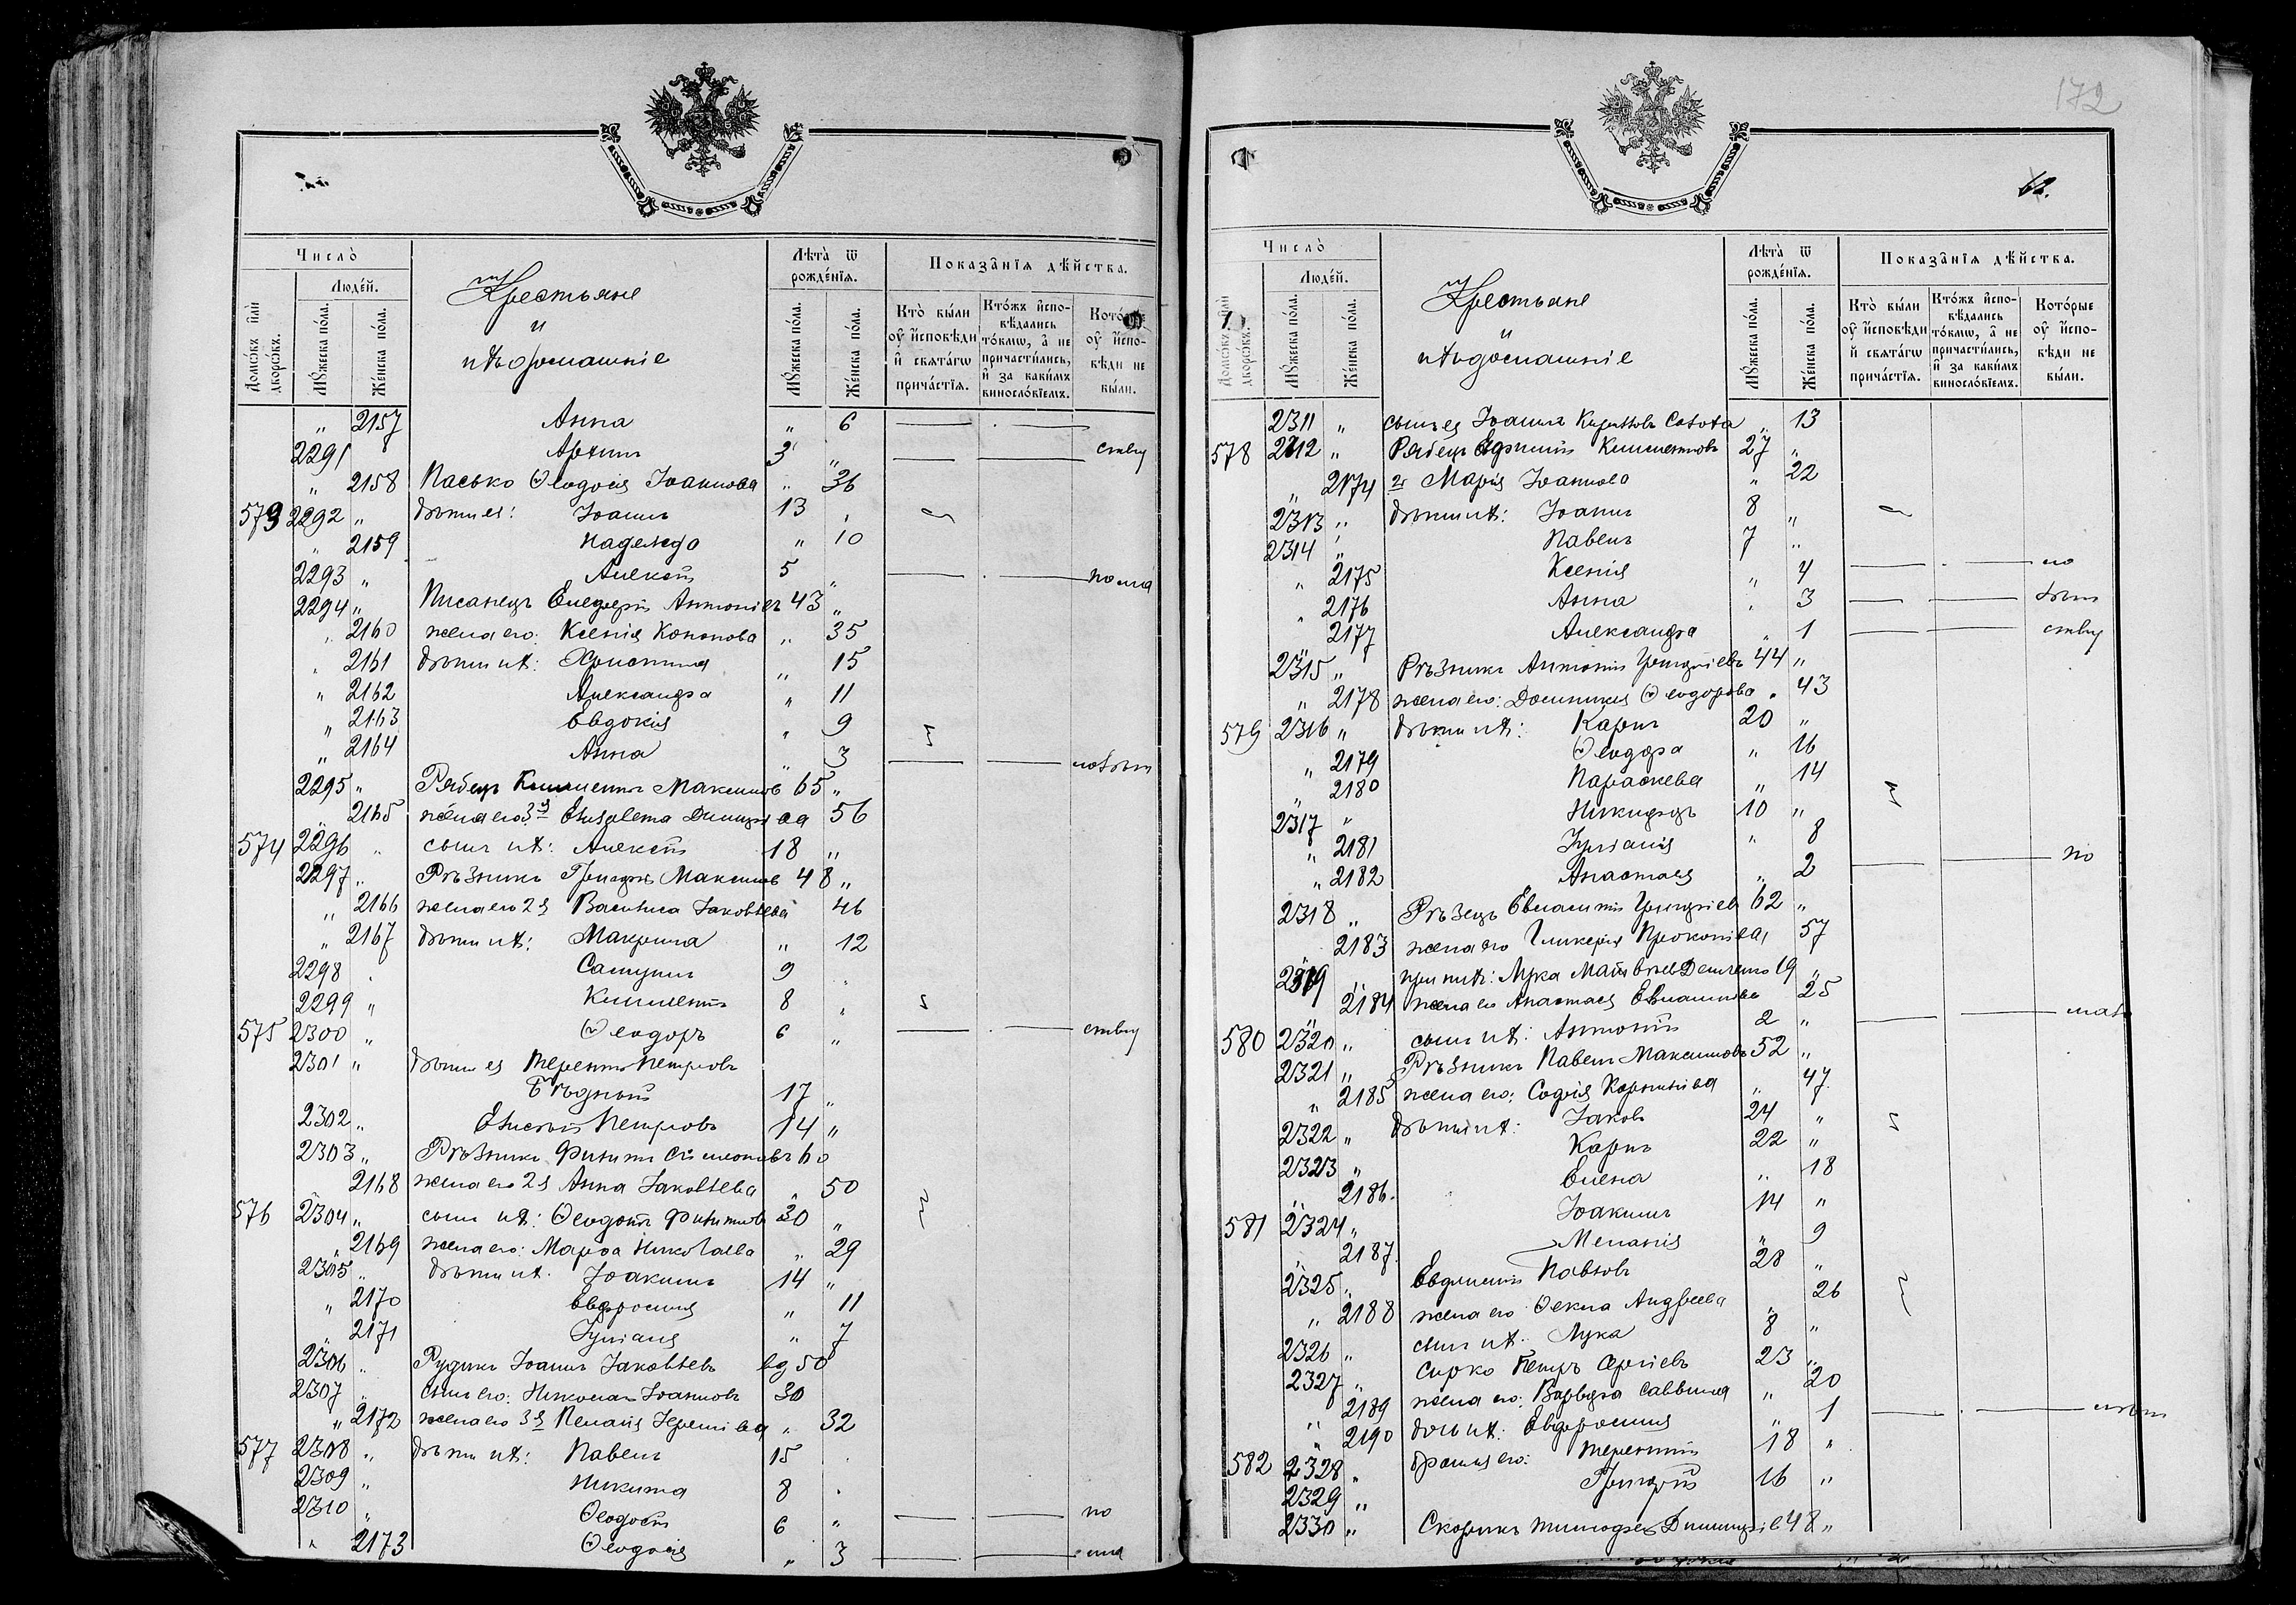 Число̀
Люде́й.
Домѡ́въ и҆лѝ дворѡ́въ.
Мꙋ́жеска по́ла.
Же́нска по́ла.
Крестьяне
и
ихъ домашніе
Лѣта̀ ѿ рожде́нїѧ.
Мꙋ́жеска по́ла.
Же́нска по́ла.
Показа̑нїѧ дѣ́йства.
Кто̀ бы́ли оу҆ и҆сповѣ́ди и҆ свѧта́гѡ прича́стїѧ.
Кто́жъ и҆спо-вѣ́дались то́кмѡ, а҆ не причасти́лись, и҆ за каки́мъ винословїемъ.
Кото́рые оу҆ и҆спо-вѣди не бы́ли.
" 2157 Анна " 6
2291 Архипъ 3 "
" 2158 Пасько Ѳеодосія Іоаннова " 36
573 2292 " дѣти ея: Іоаннъ 13
" 2159 Надежда " 10
2293 " Алексій 5 "
2294 " Писанецъ Елевферій Антоніевъ 43 "
" 2160 жена его: Ксенія Кононова " 35
" 2161 дѣти ихъ: Христина " 15
" 2162 Александра " 11
" 2163 Евдокія " 9
" 2164 Анна " 3
2295 " Рябецъ Климентъ Максимовъ 65 "
" 2165 жена его 3я Елисавета Димитріева 56
574 2296 " сынъ ихъ: Алексій 18 "
2297 " Рѣзникъ Григорій Максимовъ 48 "
" 2166 жена его 2я Василиса Іаковлева 46
" 2167 дѣти ихъ: Макрина " 12
2298 Самуилъ 9
2299 " Климентъ 8
575 2300 " Ѳеодоръ 6 "
2301 " дѣти ея Терентій Петровъ
Бѣдный 17 "
2302 " Елисей Петровъ 14 "
2303 " Рѣзникъ Филиппъ Симеоновъ 60
2168 жена его 2я Анна Іаковлева " 50
576 2304 " сынъ ихъ: Ѳеодотъ Филипповъ 30 "
" 2169 жена его: Марѳа Николаева " 29
2305 " дѣти ихъ: Іоакимъ 14 "
" 2170 Евфросинія " 11
" 2171 Іуліанія " 7
2306 " Рудикъ Іоаннъ Іаковлевъ вд 50
2307 сынъ его: Николай Іоанновъ 30
" 2172 жена его 3я Пелагія Іереміева " 32
577 2308 " дѣти ихъ: Павелъ 15
2309 " Никита 8
2310 " Ѳеодосій 6 "
" 2173 Ѳеодосія " 3
172
62.
Число̀
Люде́й.
Домѡ́въ и҆лѝ дворѡ́въ.
Мꙋ́жеска по́ла.
Же́нска по́ла.
Крестьяне
и
ихъ домашніе
Лѣта̀ ѿ рожде́нїѧ.
Мꙋ́жеска по́ла.
Же́нска по́ла.
Показа̑нїѧ дѣ́йства.
Кто̀ бы́ли оу҆ и҆сповѣ́ди и҆ свѧта́гѡ прича́стїѧ.
Кто́жъ и҆спо-вѣ́дались то́кмѡ, а҆ не причасти́лись, и҆ за каки́мъ винословїемъ.
Кото́рые оу҆ и҆спо-вѣди не бы́ли.
2311 " сынъ ея Іоаннъ Кирилловъ " 13
578 2312 " Рябецъ Ефимій Климентовъ 27 "
" 2174 Марія Іоаннова " 22
2313 " дѣти ихъ: Іоаннъ 8 "
2314 " Павелъ 7 "
" 2175 Ксенія " 4 по
" 2176 Анна " 3
" 2177 Александра " 1
2315 " Рѣзникъ Антоній Григоріевъ 44 "
" 2178 жена его: Домникія Ѳеодорова " 43
579 2316 " дѣти ихъ: Карпъ 20 "
" 2179 Ѳеодора " 16
" 2180 Параскева " 14
2317 " Никифоръ 10 "
" 2181 Іуліанія " 8
" 2182 Анастасія " 2 по
2318 " Рѣзецъ Евлампій Григоріевъ 62 "
2183 жена его Гликерія Прокопіева 57
2319 " при нихъ: Лука Матвѣевъ 19 "
" 2184 жена его Анастасія Евлампіева 25
580 2320 " сынъ ихъ: Антоній 2 "
2321 " Рѣзникъ Павелъ Максимовъ 52 "
" 2185 жена его: Софія Корниліева " 47
2322 " дѣти ихъ: Іаковъ 24 "
2323 " Карпъ 22 "
" 2186 Елена " 18
581 2324 " Іоакимъ 14 "
" 2187 Меланія " 9
2325 " Евфимій Павловъ 28 "
" 2188 жена его Ѳекла Андреева " 26
2326 " сынъ ихъ: Лука 8 "
2327 " Сирко Петръ Сергіевъ 23 "
" 2189 жена его: Варвара Саввина " 20
" 2190 дочь ихъ: Евфросинія " 1
582 2328 " братья его: Терентій 18 "
2329 " Григорій 16 "
2330 " Скорикъ Тимофей Димитріевъ 48 "